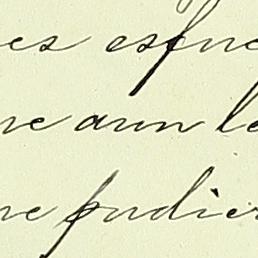 es esfue
ue aun le
ue pudier